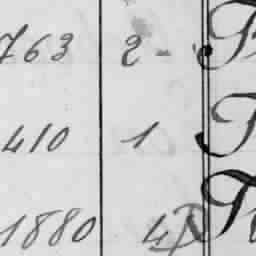 763 2-
410 1
1880 4